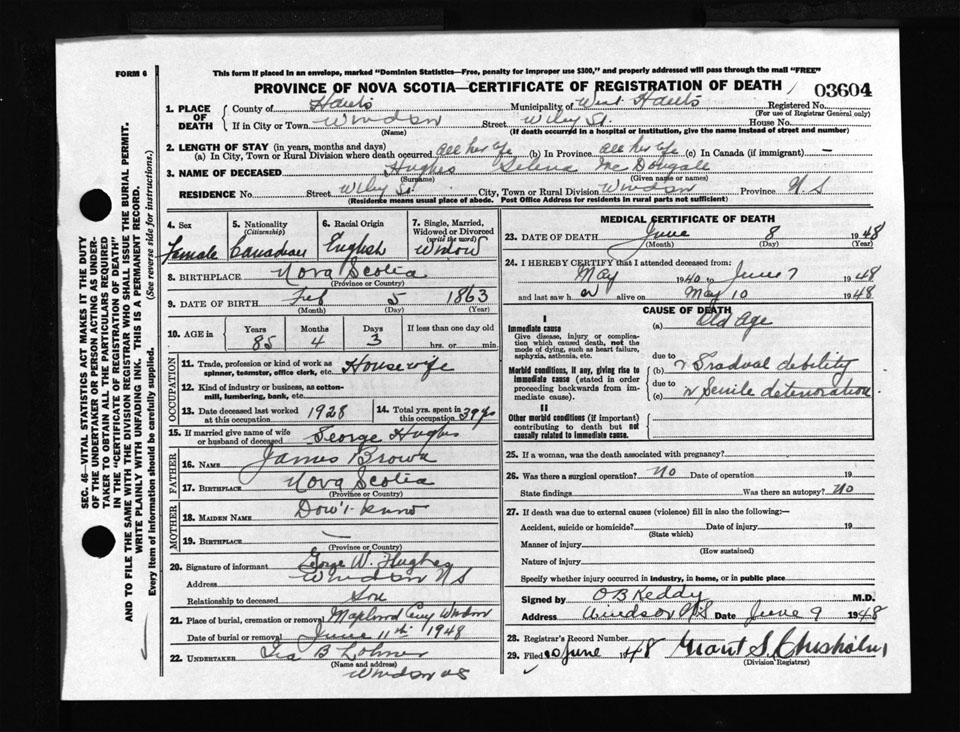 FORM 6
This form if placed in an envelope, marked "Dominion Statistics—Free, penalty for improper use $300," and properly addressed will pass through the mail "FREE"
PROVINCE OF NOVA SCOTIA—CERTIFICATE OF REGISTRATION OF DEATH
03604
1. PLACE OF DEATH
County of Hants Municipality of West Hants Registered No.
(For use of Registrar General only)
If in City or Town Windsor Street Wiley St. House No.
(Name) (If death occurred in a hospital or institution, give the name instead of street and number)
2. LENGTH OF STAY (in years, months and days)
(a) In City, Town or Rural Division where death occurred all her life (b) In Province all her life (c) In Canada (if immigrant) —
3. NAME OF DECEASED Hughes Selena McDougall
(Surname) (Given name or names)
RESIDENCE No. Street Wiley St. City, Town or Rural Division Windsor Province N S
(Residence means usual place of abode. Post Office Address for residents in rural parts not sufficient)
4. Sex
Female
5. Nationality
(Citizenship)
Canadian
6. Racial Origin
English
7. Single, Married, Widowed or Divorced
(write the word)
Widow
8. BIRTHPLACE Nova Scotia
(Province or Country)
9. DATE OF BIRTH Feb 5 1863
(Month) (Day) (Year)
10. AGE in Years Months Days If less than one day old
85 4 3 hrs. or min.
OCCUPATION
11. Trade, profession or kind of work as spinner, teamster, office clerk, etc. Housewife
12. Kind of industry or business, as cotton-mill, lumbering, bank, etc.
13. Date deceased last worked at this occupation 1928
14. Total yrs. spent in this occupation 39 yrs
15. If married give name of wife or husband of deceased George Hughes
FATHER
16. NAME James Brown
17. BIRTHPLACE Nova Scotia
(Province or Country)
MOTHER
18. MAIDEN NAME Don't know
19. BIRTHPLACE —
(Province or Country)
20. Signature of informant George W. Hughes
Address Windsor N S
Relationship to deceased Son
21. Place of burial, cremation or removal Maplewood Cemy Windsor
Date of burial or removal June 11th 1948
22. UNDERTAKER Ira B Lohnes
(Name and address)
Windsor NS
MEDICAL CERTIFICATE OF DEATH
23. DATE OF DEATH June 8 1948
(Month) (Day) (Year)
24. I HEREBY CERTIFY that I attended deceased from:
May 1940 to June 7 1948
and last saw h er alive on May 10 1948
CAUSE OF DEATH
I
Immediate cause
Give disease, injury or complication which caused death, not the mode of dying, such as heart failure, asphyxia, asthenia, etc.
(a) Old Age
due to
Morbid conditions, if any, giving rise to immediate cause (stated in order proceeding backwards from immediate cause).
(b) Gradual debility
due to
(c) Senile deterioration
II
Other morbid conditions (if important) contributing to death but not causally related to immediate cause.
25. If a woman, was the death associated with pregnancy?
26. Was there a surgical operation? No Date of operation 19
State findings Was there an autopsy? No
27. If death was due to external causes (violence) fill in also the following:—
Accident, suicide or homicide? Date of injury 19
(State which)
Manner of injury
(How sustained)
Nature of injury
Specify whether injury occurred in industry, in home, or in public place
Signed by O B Keddy M.D.
Address Windsor N.S Date June 9 1948
28. Registrar's Record Number
29. Filed 10 June 1948 Grant S. Chisholm
(Division Registrar)
SEC. 46—VITAL STATISTICS ACT MAKES IT THE DUTY
OF THE UNDERTAKER OR PERSON ACTING AS UNDER-
TAKER TO OBTAIN ALL THE PARTICULARS REQUIRED
IN THE "CERTIFICATE OF REGISTRATION OF DEATH"
AND TO FILE THE SAME WITH THE DIVISION REGISTRAR WHO SHALL ISSUE THE BURIAL PERMIT.
WRITE PLAINLY WITH UNFADING INK. THIS IS A PERMANENT RECORD.
Every item of information should be carefully supplied. (See reverse side for instructions.)